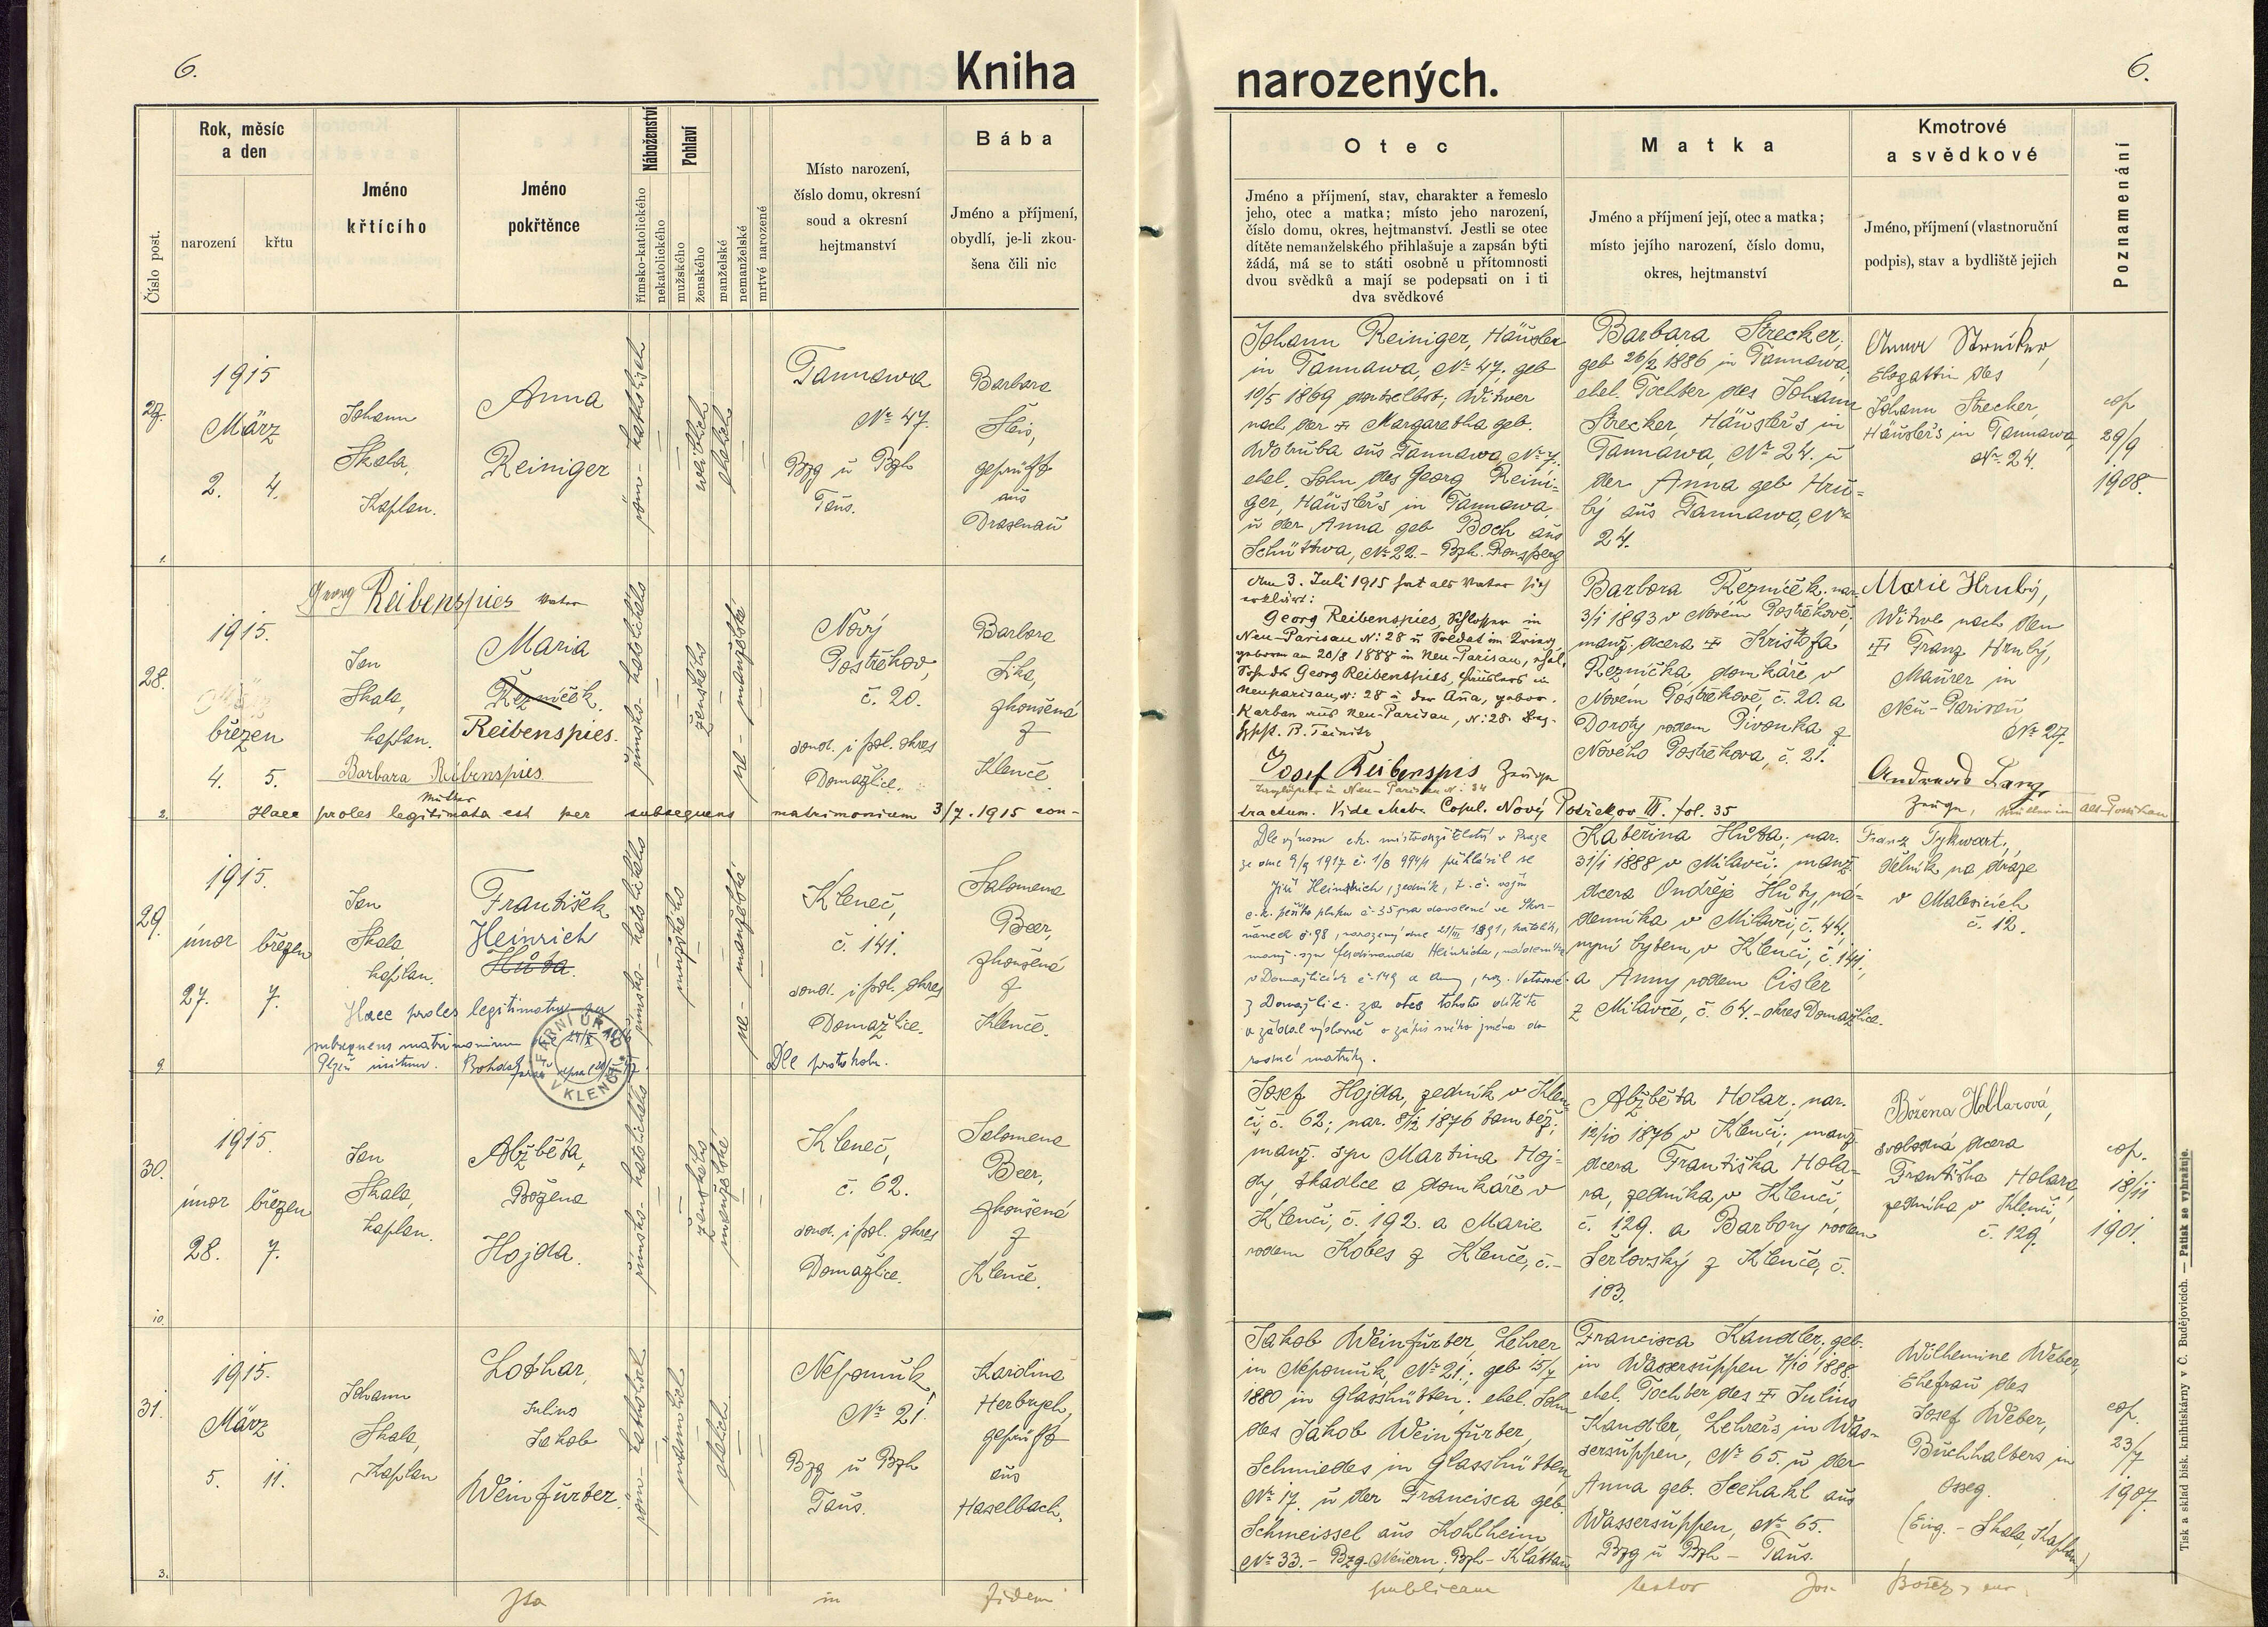 6.
Kniha
Číslo post.
Rok, měsíc
a den
narození
křtu
Jméno
křtícího
Jméno
pokřtěnce
Náboženství
římsko-katolického
nekatolického
Pohlaví
mužského
ženského
manželské
nemanželské
mrtvé narozené
Místo narození,
číslo domu, okresní
soud a okresní
hejtmanství
Bába
Jméno a příjmení,
obydlí, je-li zkou-
šena čili nic
27.
1915
März
2. 4.
Johann
Skala,
Kaplan.
Anna
Reiniger
röm - katholisch
weiblich
ehelich
Tannawa
№ 47.
Bzg u Bzh
Taus.
Barbara
geprüft
aus
Drasenau
1.
28.
1915.
březen
4. 5.
Georg Reibenspies Vater
Jan
Skala,
kaplan.
Barbara Reibenspies
Mutter
Maria
Řezníček.
Reibenspies.
římsko - katolického
ženského
ne - manželské
Nový
Postřekov,
č. 20.
soud. i pol. okres
Domažlice.
Barbora
zkoušená
z
Klenče
2.
Haec proles legitimata est per subsequens matrimonium 3/7. 1915 con-
29.
1915.
únor březen
27. 7.
Jan
Skala
kaplan.
František
Heinrich
Hůta.
římsko - katolického
mužského
ne - manželské
Klenec,
č. 141.
soud. i pol. okres
Domažlice.
Salomena
Beer,
zkoušená
z
Klenče.
Haec proles legitimatur per
subsequens matrimonium
Dle protokolu.
FARNÍ ÚŘAD V KLENČI
9.
30.
1915.
únor březen
28. 7.
Jan
Skala,
kaplan.
Alžběta,
Božena
Hojda.
římsko - katolického
ženského
manželské
Klenec,
č. 62.
soud. i pol. okres
Domažlice.
Salomena
Beer,
zkoušená
z
Klenče.
10.
31.
1915.
März
5. 11.
Johann
Skala,
Kaplan
Lothar,
Julius
Jakob
Weinfurter.
röm - katholisch
männlich
ehelich
Nepomuk,
№ 21.
Bzg u Bzh
Taus.
Karolina
geprüft
aus
Haselbach.
3.
Ita in fidem
narozených.
6.
Otec
Jméno a příjmení, stav, charakter a řemeslo
jeho, otec a matka; místo jeho narození,
číslo domu, okres, hejtmanství. Jestli se otec
dítěte nemanželského přihlašuje a zapsán býti
žádá, má se to státi osobně u přítomnosti
dvou svědků a mají se podepsati on i ti
dva svědkové
Matka
Jméno a příjmení její, otec a matka;
místo jejího narození, číslo domu,
okres, hejtmanství
Kmotrové
a svědkové
Jméno, příjmení (vlastnoruční
podpis), stav a bydliště jejich
Poznamenání
Johann Reiniger, Häusler
in Tannawa, № 47. geb
10/5 1869 daselbst; Witwer
nach der † Margaretha geb.
Wotruba aus Tannawa, № 7.
ehel. Sohn des Georg Reini-
ger, Häuslers in Tannawa,
u der Anna geb Boch aus
Schüttwa, № 22 - Bzh. Ronsperg
Barbara Strecker,
geb 26/2 1886 in Tannawa,
ehel. Tochter des Johann
Strecker, Häuslers in
Tannawa, № 24. u
der Anna geb Hru-
bý aus Tannawa, №
24.
Ehegattin des
Johann Strecker,
Häuslers in Tannawa,
№ 24.
cop
29/9
1908.
Am 3. Juli 1915 hat als Vater sich
erklärt:
Georg Reibenspies, Schlosser in
Neu-Parisau N: 28 u Soldat im Kriege,
geboren am 20/8 1888 in Neu-Parisau, ehel.
Sohn des Georg Reibenspies, Häuslers in
Neuparisau, N: 28 u der Anna, gebor.
Karban aus Neu-Parisau, N: 28. Bez-
hpt. B. Teinitz
Josef Reibenspis Zeuge
in Neu-Parisau N: 34
Barbora Řezníček, nar.
3/1 1893 v Novém Postřekově,
manž. dcera † Kristofa
Řezníčka, domkáře v
Novém Postřekově, č. 20. a
Doroty rodem Pivonka z
Nového Postřekova, č. 21.
Marie Hrubý,
Witwe nach dem
† Franz Hrubý,
Maurer in
Neu-Parisau
№ 27.
Andreas Lang,
Zeuge,
tractum. Vide Matr. Copul. Nový Postřekov III. fol. 35
Dle výnosu c.k. místodržitelství v Praze
ze dne 9/8 1917 přihlásil se
Jiří Heinrich, zedník, t. č. vojín
c.k. pěšího pluku č. 35 na dovolené
č. 98, narozený dne 21/III 1891, katolík,
manž. syn Ferdinanda Heinricha, nádeníka
v Domažlicích č. 149 a Anny,
z Domažlic. za otce tohoto dítěte
a žádal výslovně o zápis svého jména do
rodné matriky.
Kateřina Hůta, nar.
31/1 1888 v Milavči; manž.
dcera Ondřeje Hůty, ná-
denníka v Milavči, č. 44,
nyní bytem v Klenči, č. 141,
a Anny rodem Cisler
z Milavče, č. 64. - okres Domažlice.
Franz Tykwart,
dělník na dráze
v Malesicích
č. 12.
Josef Hojda, zedník v Klen-
či, č. 62; nar. 8/12 1876 tamtéž;
manž. syn Martina Hoj-
dy, tkadlce a domkáře v
Klenči, č. 192. a Marie
rodem Kobes z Klenče, č. -
Alžběta Holar, nar.
12/10 1876 v Klenči; manž.
dcera Františka Hola-
ra, zedníka v Klenči,
č. 129. a Barbory rodem
Šerlovský z Klenče, č.
103.
Božena Hollarová,
svobodná dcera
Františka Holara,
zedníka v Klenči,
č. 129.
cop.
18/11
1901.
Jakob Weinfurter, Lehrer
in Nepomuk, № 21.; geb 15/7
1880 in Glasshütten; ehel. Sohn
des Jakob Weinfurter,
Schmiedes in Glasshütten
№ 17. u der Francisca geb.
Schmeissel aus Kohlheim
№ 33. - Bzg-Neuern; Bzh - Klattau
Francisca Kandler, geb.
in Wassersuppen 7/10 1888.
ehel. Tochter des † Julius
Kandler, Lehrers in Was-
sersuppen, № 65. u der
Anna geb. Seehakl aus
Wassersuppen, № 65.
Bzg u Bzh - Taus.
Wilhemine Weber,
Ehefrau des
Josef Weber,
Buchhalters in
Osseg.
(Eing. - Skala, Kaplan)
cop.
23/7
1907.
publicam testor Jos.
Tisk a sklad bisk. knihtiskárny v Č. Budějovicích. — Patisk se vyhražuje.